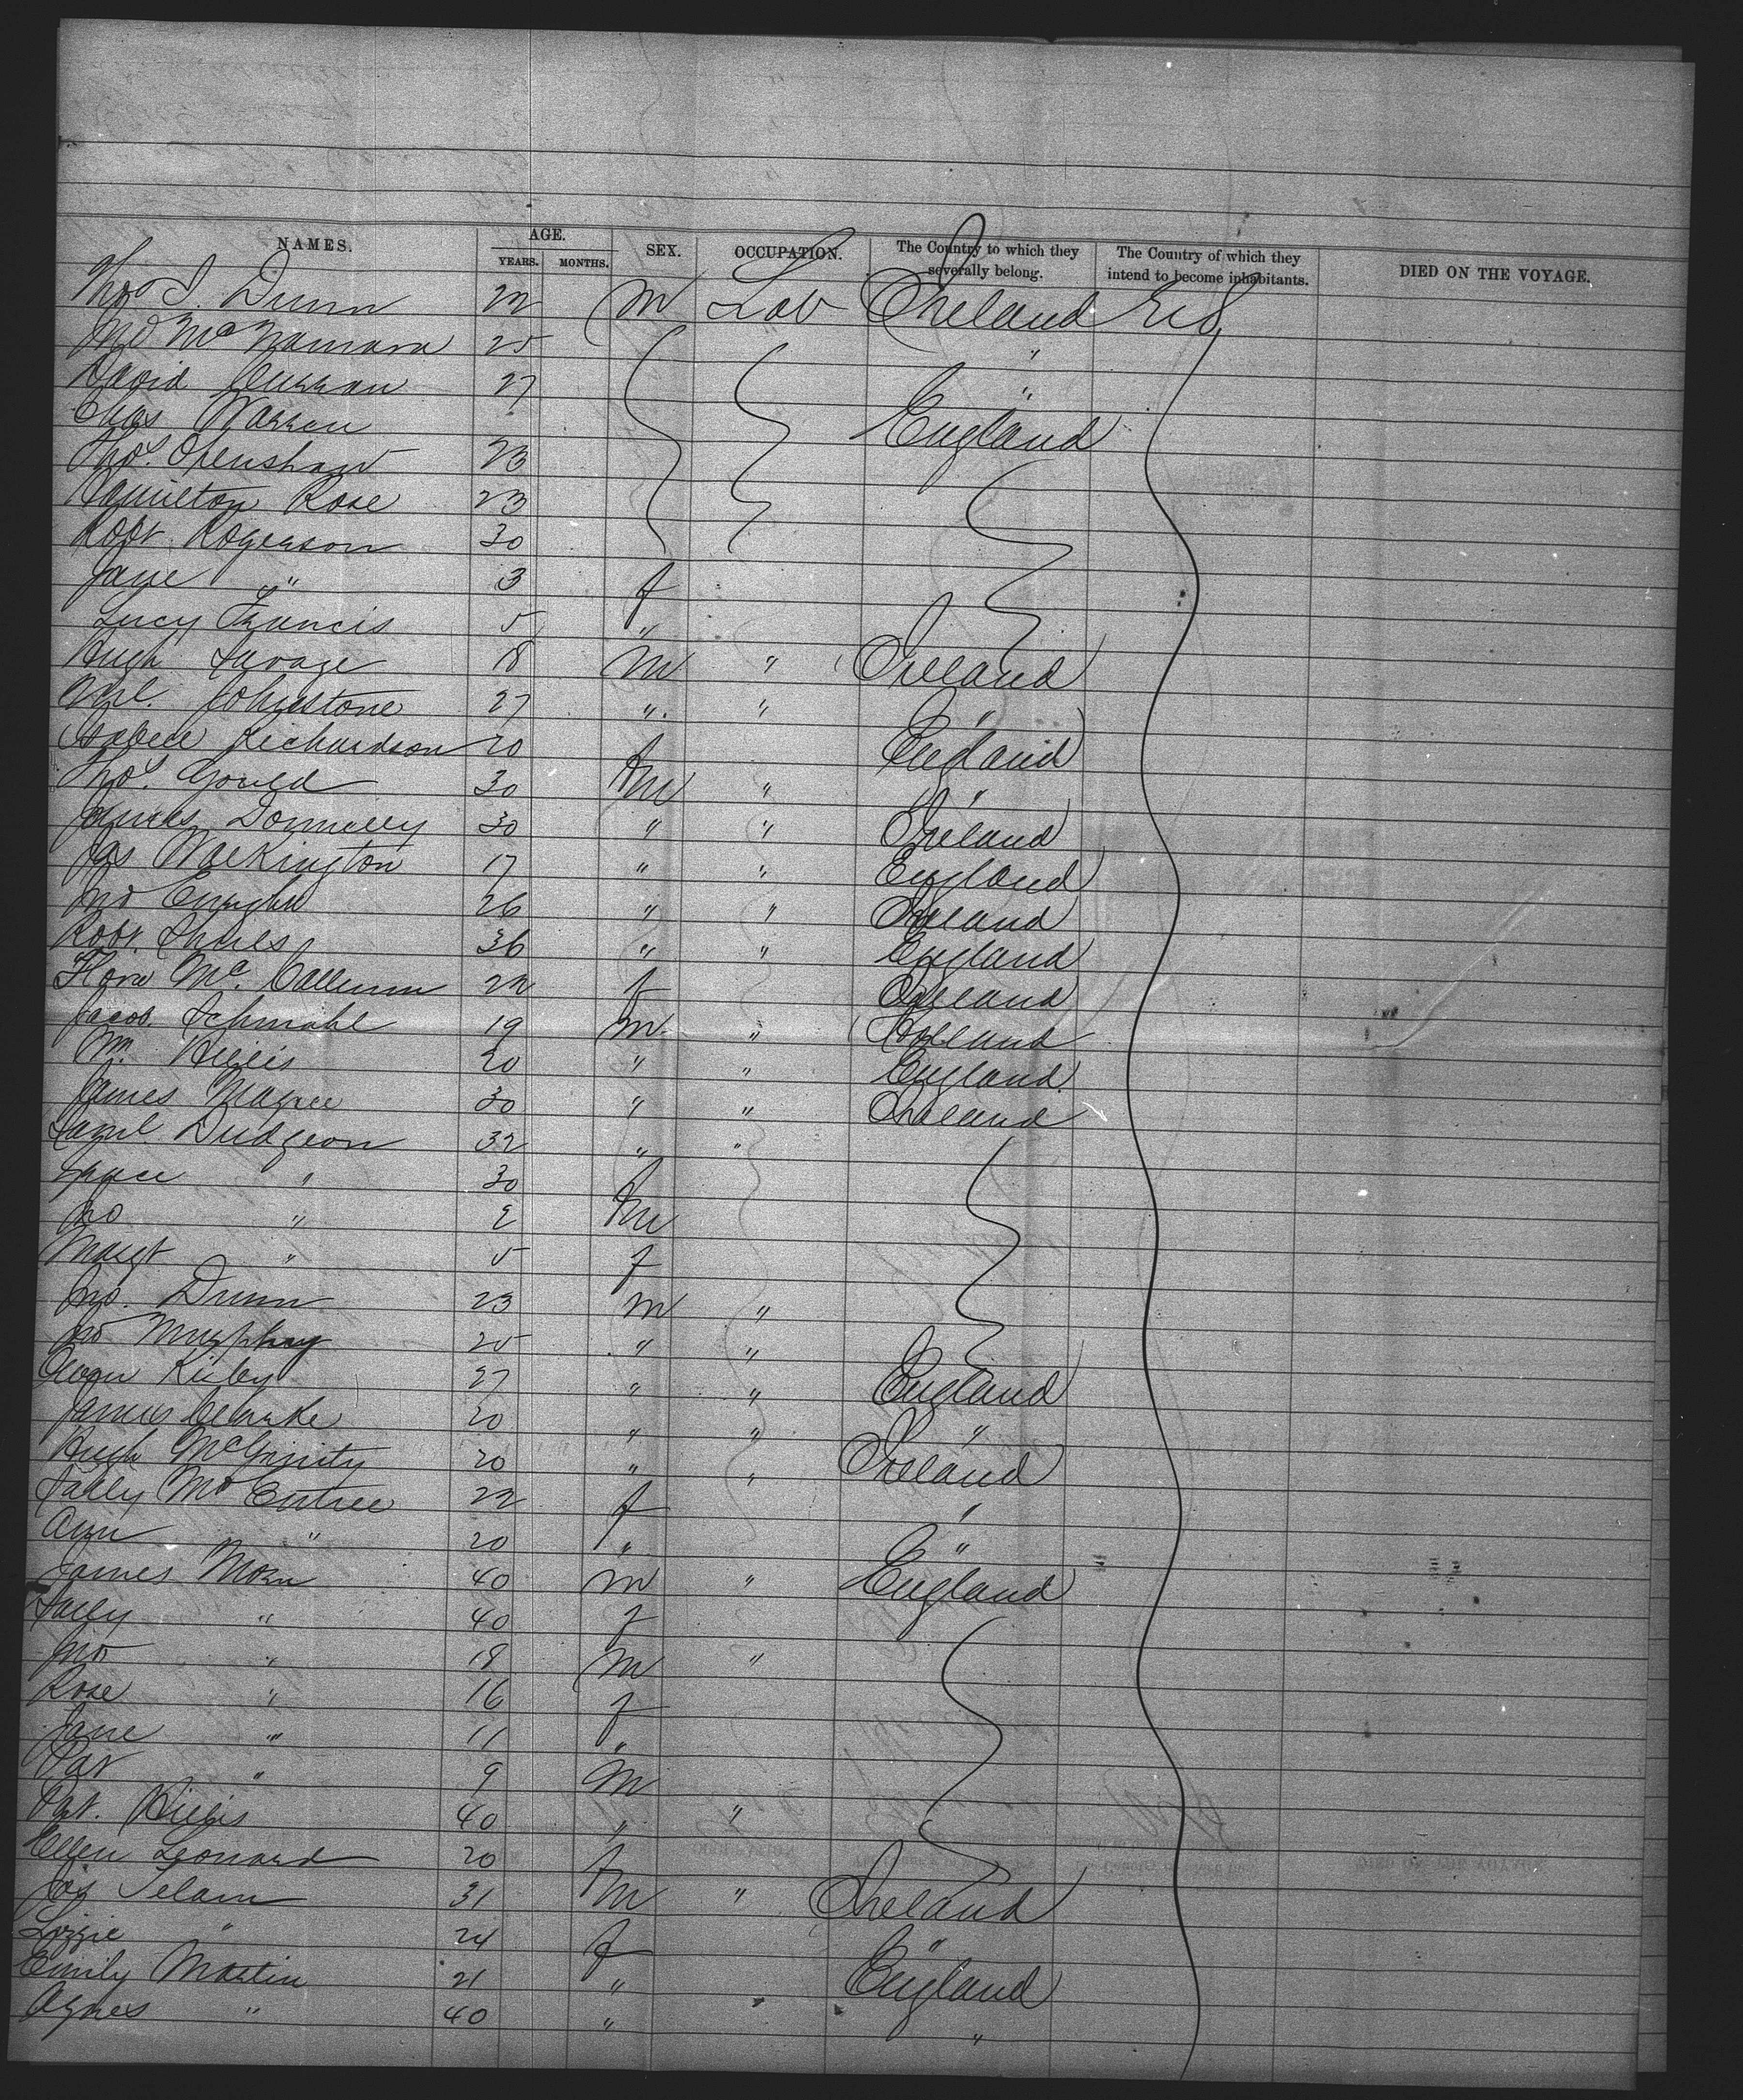 NAMES. AGE. YEARS. MONTHS. SEX. OCCUPATION. The Country to which they severally belong. The Country of which they intend to become inhabitants. DIED ON THE VOYAGE.
Thos J. Dunn 22 M Lab Ireland U S
Jno McNamara 25 "
David Curran 27 "
Chas Warren England
Thos. Openshaw 23
Hamilton Rose 23
Robt Rogerson 30
Jane " 3 f
Lucy Francis 5 "
Hugh Savage 18 M " Ireland
Johnstone 27 " " "
Isabell Richardson 20 f England
Thos. Gould 30 M " "
James Donnelly 30 " " Ireland
Jas Workington 17 " " England
Jno 26 " " Ireland
Robt. 36 " " England
Flora Mc. Callum 22 f Ireland
Jacob. Schmahl 19 M " Holland
Wm. Hillis 20 " " England
James Magee 30 " " Ireland
Saml Dudgeon 32 " "
Grace " 30 f
Jno " 2 M
Margt " 5 f
Jno. Dunn 23 M "
Jno Murphy 25 " "
Owen Kirby 27 " " England
James Clarke 20 " " "
Hugh McGinity 20 " " Ireland
Sally Mc Entree 22 f "
Ann " 20 " "
James Morn 40 M " England
Sally " 40 f
Jno " 18 M "
Rose " 16 f
Jane " 11 "
Pat " 9 M
Pat. Hillis 40 " "
Ellen Leonard 20 f
Jos Selam 31 M " Ireland
Lizzie " 24 f "
Emily Martin 21 " England
Agnes " 40 " "